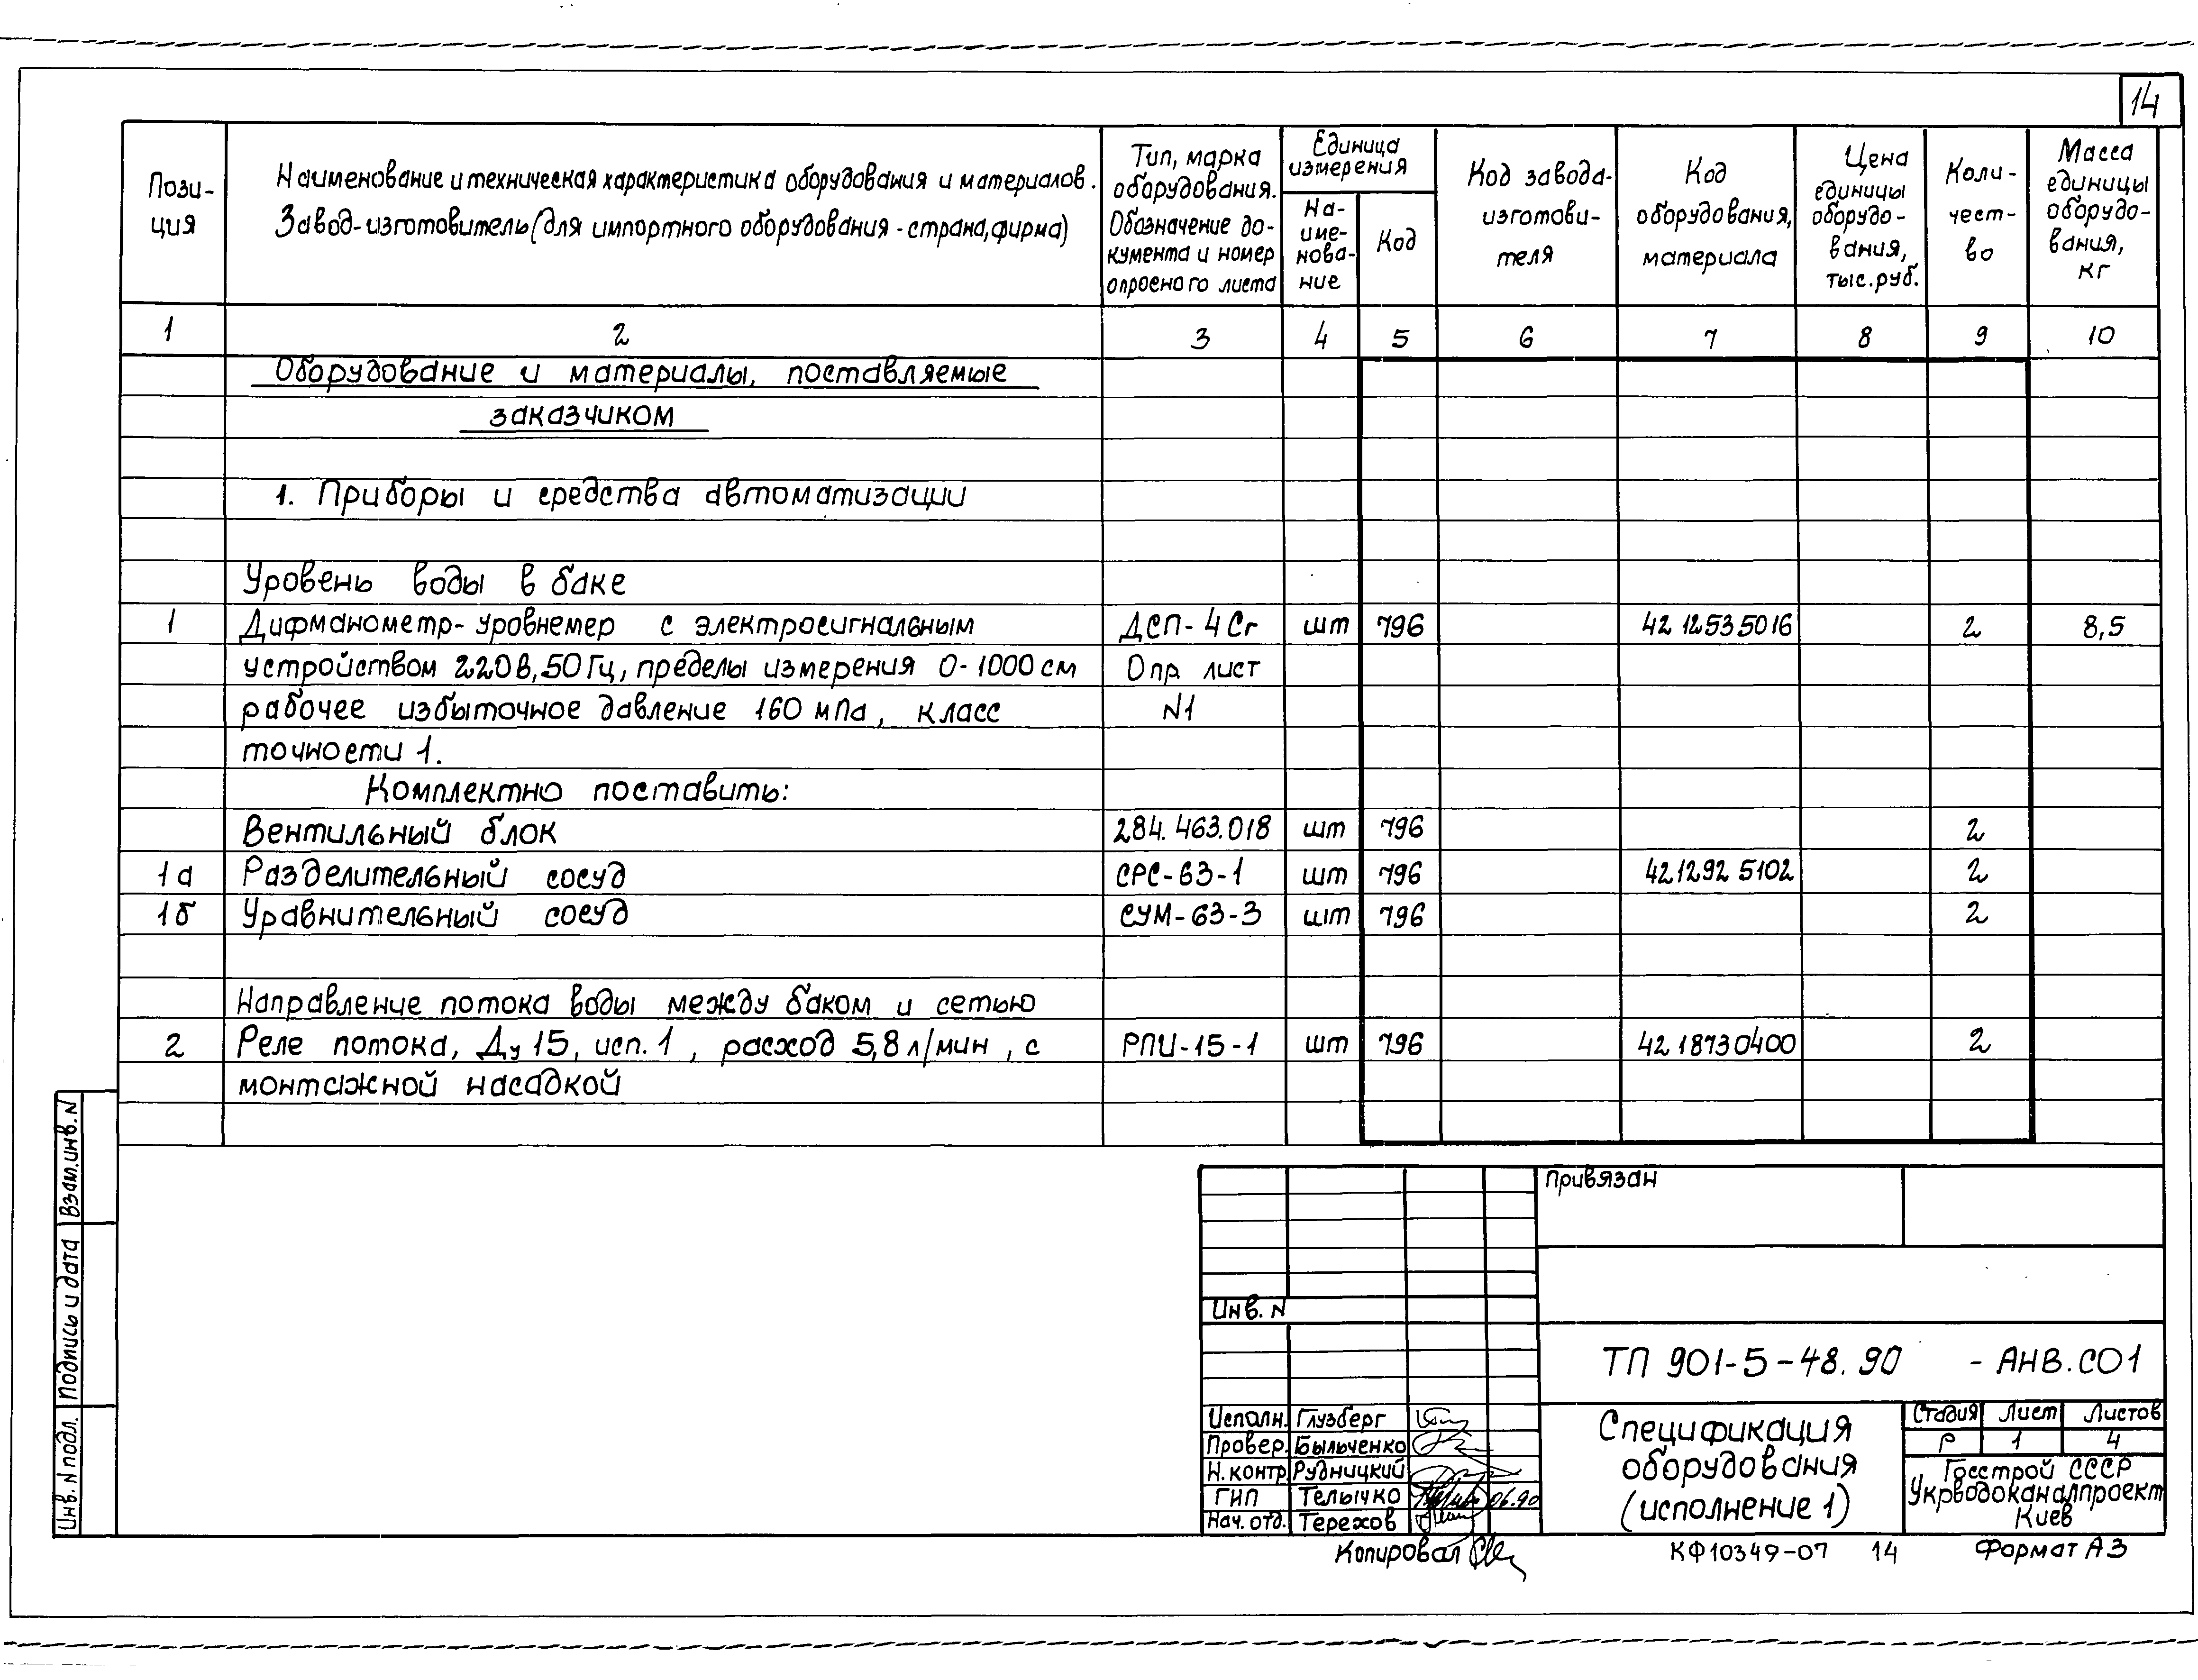 14
Пози-
ция
Наименование и техническая характеристика оборудования и материалов.
Завод-изготовитель (для импортного оборудования - страна, фирма)
Тип, марка
оборудования.
Обозначение до-
кумента и номер
опросного листа
Единица
измерения
На-
име-
нова-
ние
Код
Код завода-
изготови-
теля
Код
оборудования,
материала
Цена
единицы
оборудо-
вания,
тыс. руб.
Коли-
чест-
во
Масса
единицы
оборудо-
вания,
кг
1 2 3 4 5 6 7 8 9 10
Оборудование и материалы, поставляемые
заказчиком
1. Приборы и средства автоматизации
Уровень воды в баке
1 Дифманометр-уровнемер с электросигнальным ДСП-4Сг шт 796 42 1253 5016 2 8,5
устройством 220В, 50Гц, пределы измерения 0-1000 см Опр. лист
рабочее избыточное давление 160 мПа, класс N1
точности 1.
Комплектно поставить:
Вентильный блок 284.463.018 шт 796 2
1а Разделительный сосуд СРС-63-1 шт 796 421292 5102 2
1б Уравнительный сосуд СУМ-63-3 шт 796 2
Направление потока воды между баком и сетью
2 Реле потока, Ду 15, исп. 1, расход 5,8 л/мин, с РПИ-15-1 шт 796 42 1873 0400 2
монтажной насадкой
Взам. инв. N
Подпись и дата
Инв. N подл.
Привязан
Инв. N
ТП 901-5-48.90 - АНВ.СО1
Исполн. Глузберг
Провер. Быльченко
Н. контр. Рудницкий
ГИП Телычко 06.90
Нач. отд. Терехов
Спецификация
оборудования
(исполнение 1)
Стадия Лист Листов
Р 1 4
Госстрой СССР
Укрводоканалпроект
Киев
Копировал
КФ10349-07 14 Формат А3